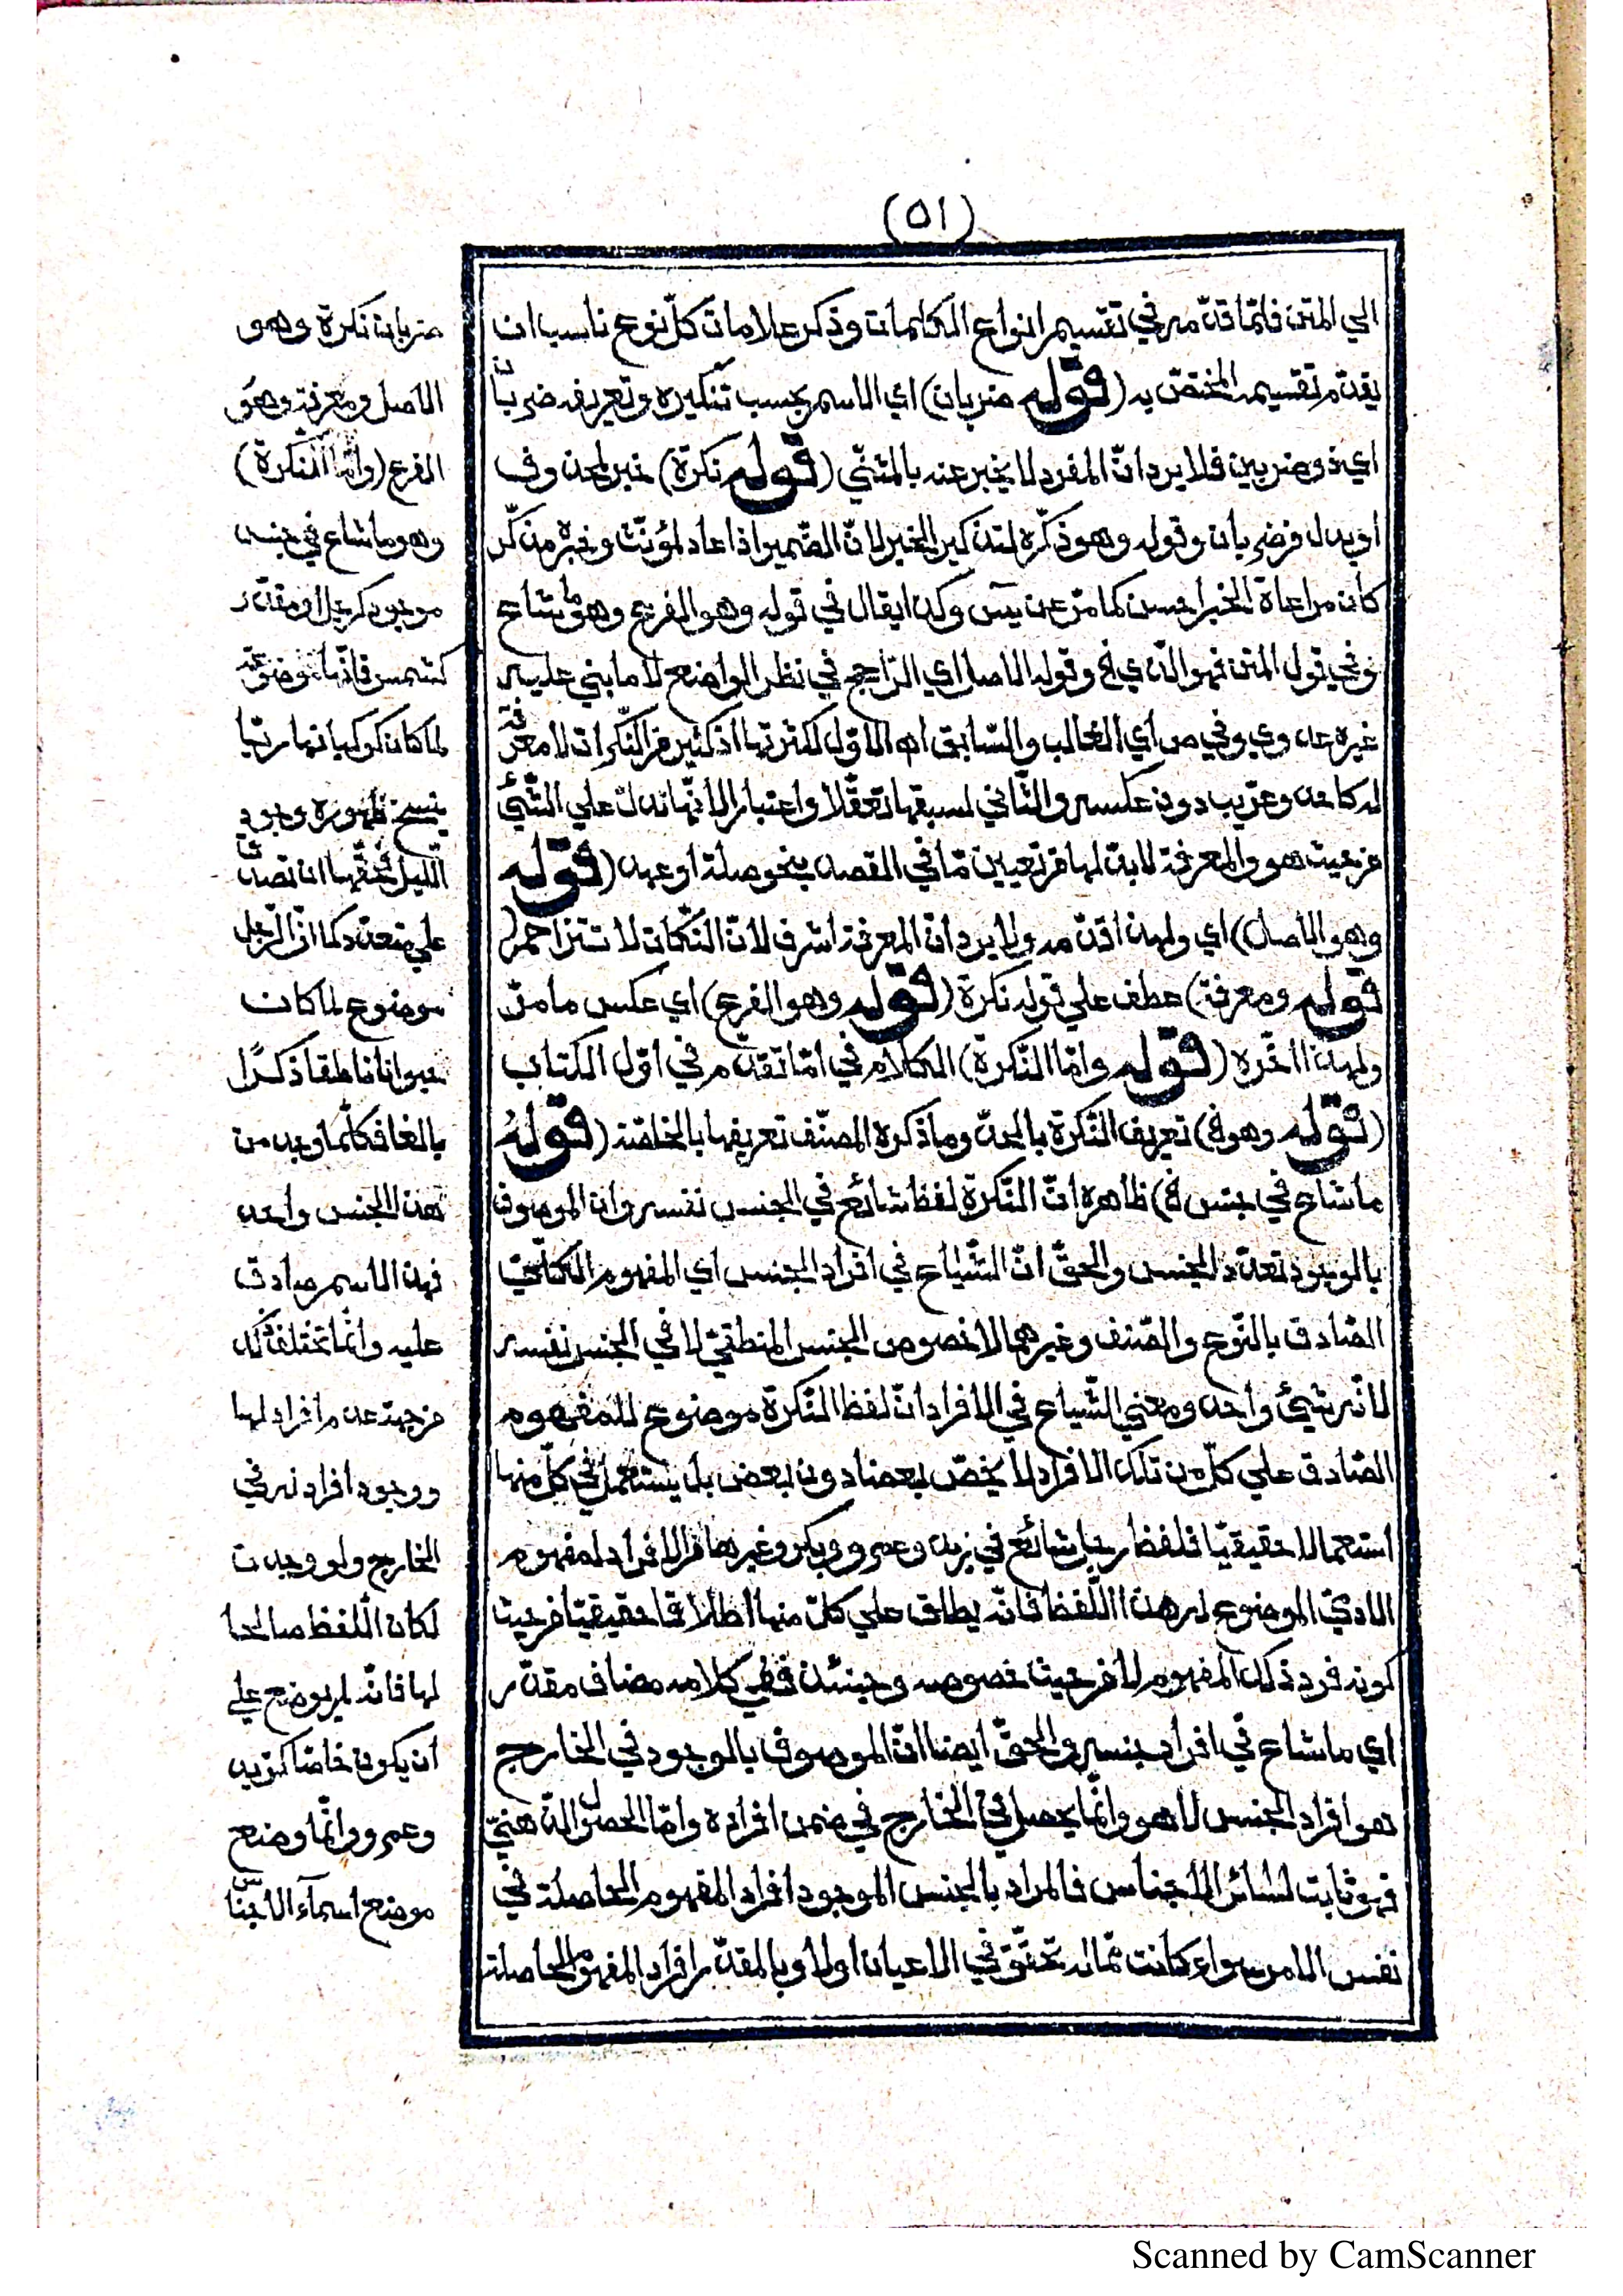 (٥١)
الي المتن فلمّا قدّمه في تقسيم انواع الكلمات وذكر علامات كلّ نوع ناسب ان
يقدّم تقسيمه المختصّ به (قوله ضربان) اي الاسم بحسب تنكيره وتعريفه ضربان
اي ذو ضربين فلا يرد انّ المفرد لا يخبر عنه بالمثنّي (قوله نكرة) خبر لمحذوف
او بدل من ضربان وقوله وهو ذكّره لتذكير الخبر لانّ الضّمير اذا عاد لمؤنّث وخبره مذكّر
كان مراعاة الخبر احسن كما مرّ عن يسٓ وكذا يقال في قوله وهو الفرع وهو ما شاع
ونحي قول المتن فهو الّذي الخ وقوله الاصل اي الرّاجح في نظر الواضع لا ما بني عليه
غيره اي الغالب والسّابق اه الاوّل لكثرتها اذ كثير من النّكرات لا معرفة
له كاحد وعريب دون عكسه والثّاني لسبقها تعقّلا واعتبارا لانّها تدلّ علي الشّئ
من حيث هو والمعرفة لا بدّ لها من تعيين مّا في القصد بنحو صلة او عهد (قوله
وهو الاصل) اي ولهذا قدّمه ولا يرد انّ المعرفة اشرف لانّ النّكات لا تتزاحم (
قوله ومعرفة) عطف علي قوله نكرة (قوله وهو الفرع) اي عكس ما مرّ
ولهذا اخّره (قوله وامّا النّكرة) الكلام في امّا تقدّم في اوّل الكتاب
(قوله وهو الخ) تعريف النّكرة بالحدّ وما ذكره المصنّف تعريفها بالخاصّة (قوله
ما شاع في جنس الخ) ظاهره انّ النّكرة لفظ شائع في الجنس نفسه وان الموصوف
بالوجود تعدّد الجنس والحقّ انّ الشّياع في افراد الجنس اي المفهوم الكلّيّ
الصّادق بالنّوع والصّنف وغيرهما لا خصوص الجنس المنطقيّ لا في الجنس نفسه
لانّه شئ واحد ومعني الشّياع في الافراد انّ لفظ النّكرة موضوع للمفهوم
الصّادق علي كلّ من تلك الافراد لا يخصّ بعضا دون بعض بل يستعمل في كلّ منها
استعمالا حقيقيّا فلفظ رجل شائع في زيد وعمرو وبكر وغيرها من الافراد لمفهوم
الادميّ الموضوع له هذا اللّفظ فانّه يطلق علي كلّ منها اطلاقا حقيقيّا من حيث
كونه فرد ذلك المفهوم لا من حيث خصوصه وحينئذ ففي كلامه مضاف مقدّر
اي ما شاع في افراد جنسه والحقّ ايضا انّ الموصوف بالوجود في الخارج
هو افراد الجنس لا هو وانّما يحصل في الخارج في ضمن افراده وامّا الحصول الذّهنيّ
فهو ثابت لسائر الاجناس فالمراد بالجنس الموجود افراد المفهوم الحاصلة في
نفس الامر سواء كانت ممّا له تحقّق في الاعيان اولا وبالمقدّر افراد المفهوم الحاصلة
ضربان نكرة وهو
الاصل ومعرفة وهو
الفرع (وامّا النّكرة)
وهو ما شاع في جنس
موجود كرجل او مقدّر
كشمس فانّها موضوعة
لما كان كوكبا نهاريّا
ينسخ ظهوره وجود
اللّيل فحقّها ان تصدق
علي متعدّد كما انّ الرّجل
موضوع لما كان
حيوانا ناطقا ذكرًا
بالغا فكلّما وجد من
هذا الجنس واحد
فهذا الاسم صادق
عليه وانّما تخلّف ذلك
من جهة عدم افراد لها
ووجود افراد له في
الخارج ولو وجدت
لكان اللّفظ صالحا
لها فانّه لم يوضع علي
ان يكون خاصّا كزيد
وعمرو وانّما وضع
موضع اسمآء الاجناس
Scanned by CamScanner